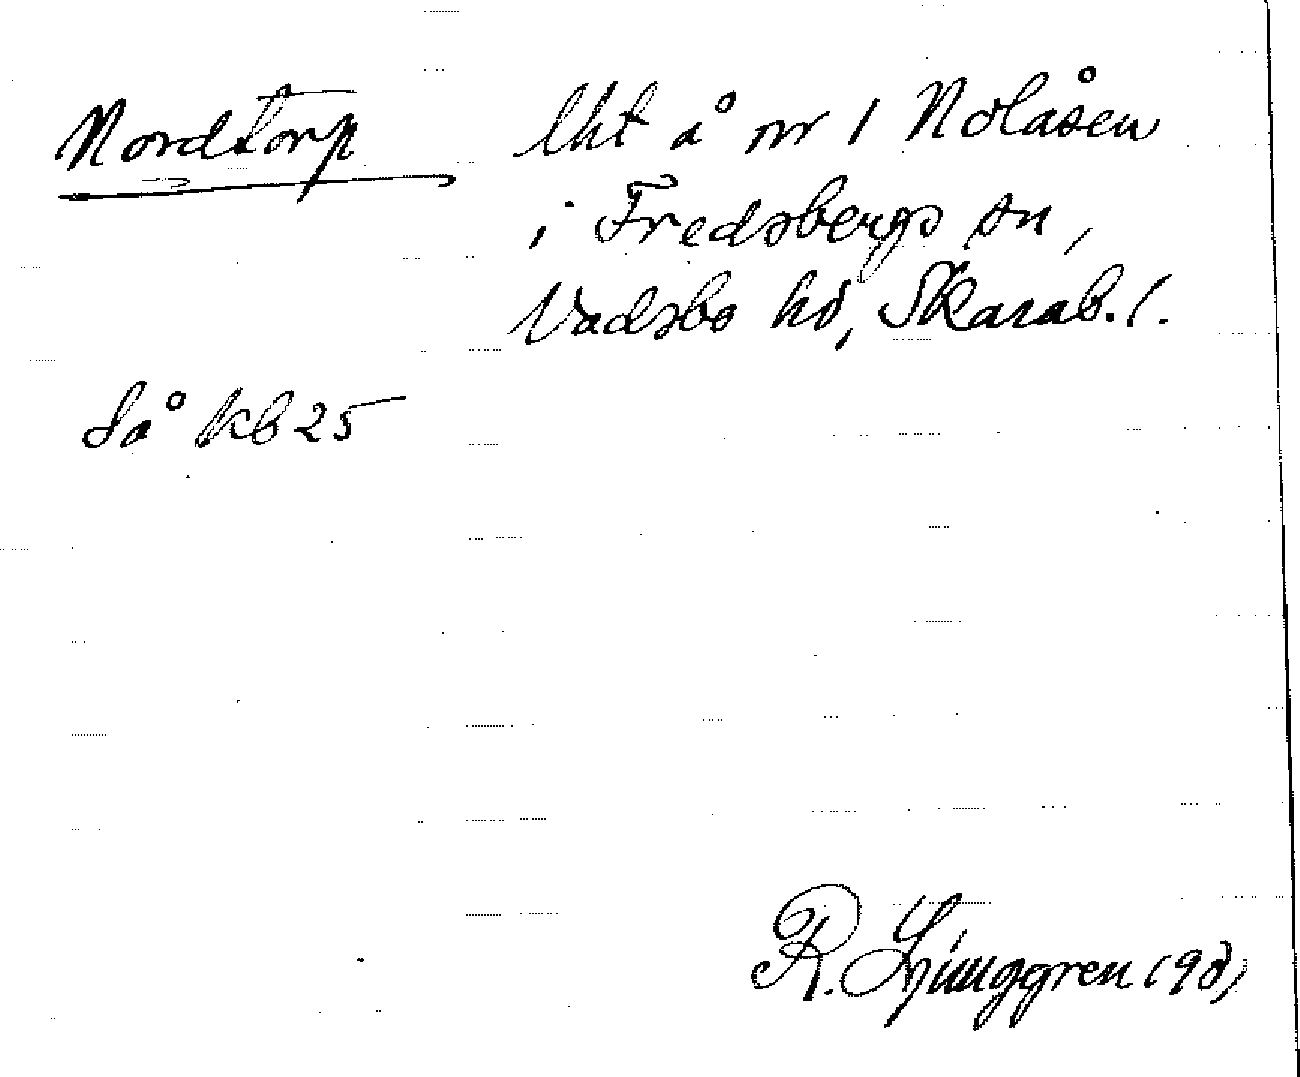 Nordtorp lht å nr 1 Nolåsen
i Fredsbergs sn,
Vadsbo hd, Skarab. l.
Så kb 25
R. Ljunggren (98)